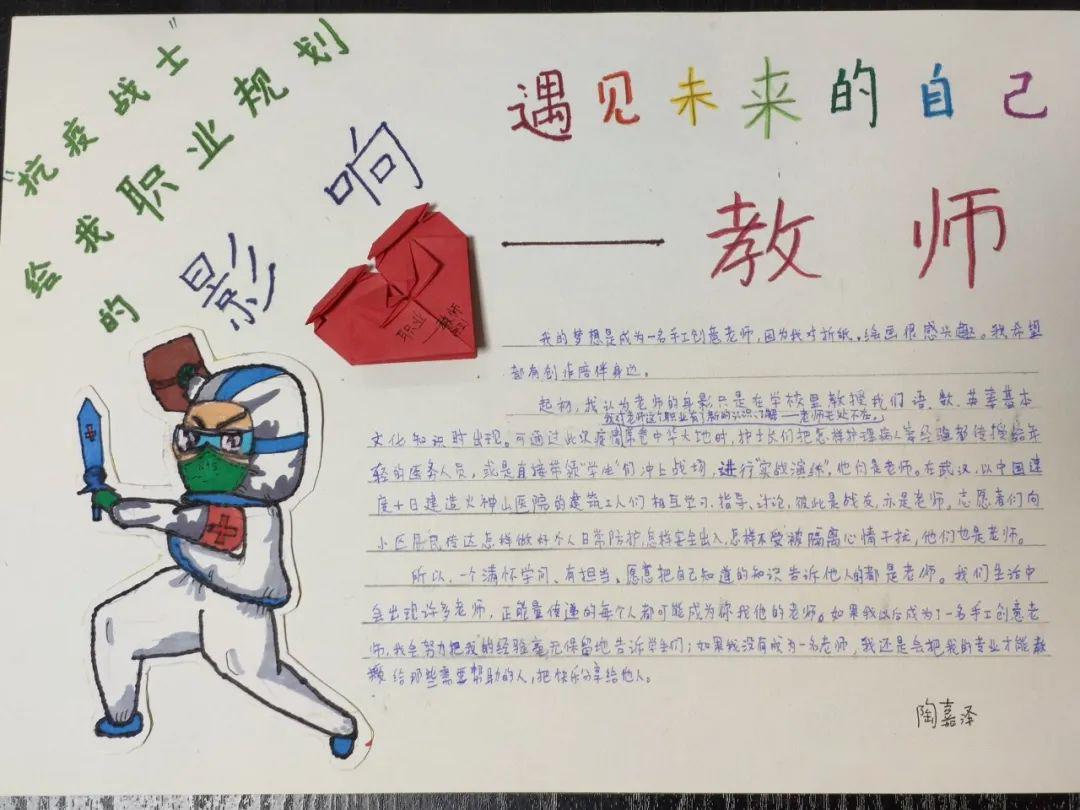 “抗疫战士”
给我职业规划
的影响
遇见未来的自己
——教师
职业
教师
我的梦想是成为一名手工创意老师,因为我对折纸、绘画很感兴趣。我希望
都有创作陪伴身边。
起初,我认为老师的身影只是在学校里教授我们语、数、英等基本
我对老师这个职业有了新的认识、了解——老师无处不在。
文化知识时出现。可通过此次疫情席卷中华大地时,护士们把怎样护理病人等经验都传授给年
轻的医务人员,或是直接带领“学生”们冲上战场,进行“实战演练”,他们是老师。在武汉,以中国速
度十日建造火神山医院的建筑工人们相互学习、指导、讨论,彼此是战友,亦是老师。志愿者们向
小区居民传达怎样做好个人日常防护,怎样安全出入,怎样不受被隔离心情干扰,他们也是老师。
所以,一个满怀学问、有担当、愿意把自己知道的知识告诉他人的都是老师。我们生活中
会出现许多老师,正能量传递的每个人都可能成为你我他的老师。如果我以后成为了一名手工创意老
师,我会努力把我的经验毫无保留地告诉学生们;如果我没有成为一名老师,我还是会把我的专业才能教
授给那些需要帮助的人,把快乐分享给他人。
陶嘉泽